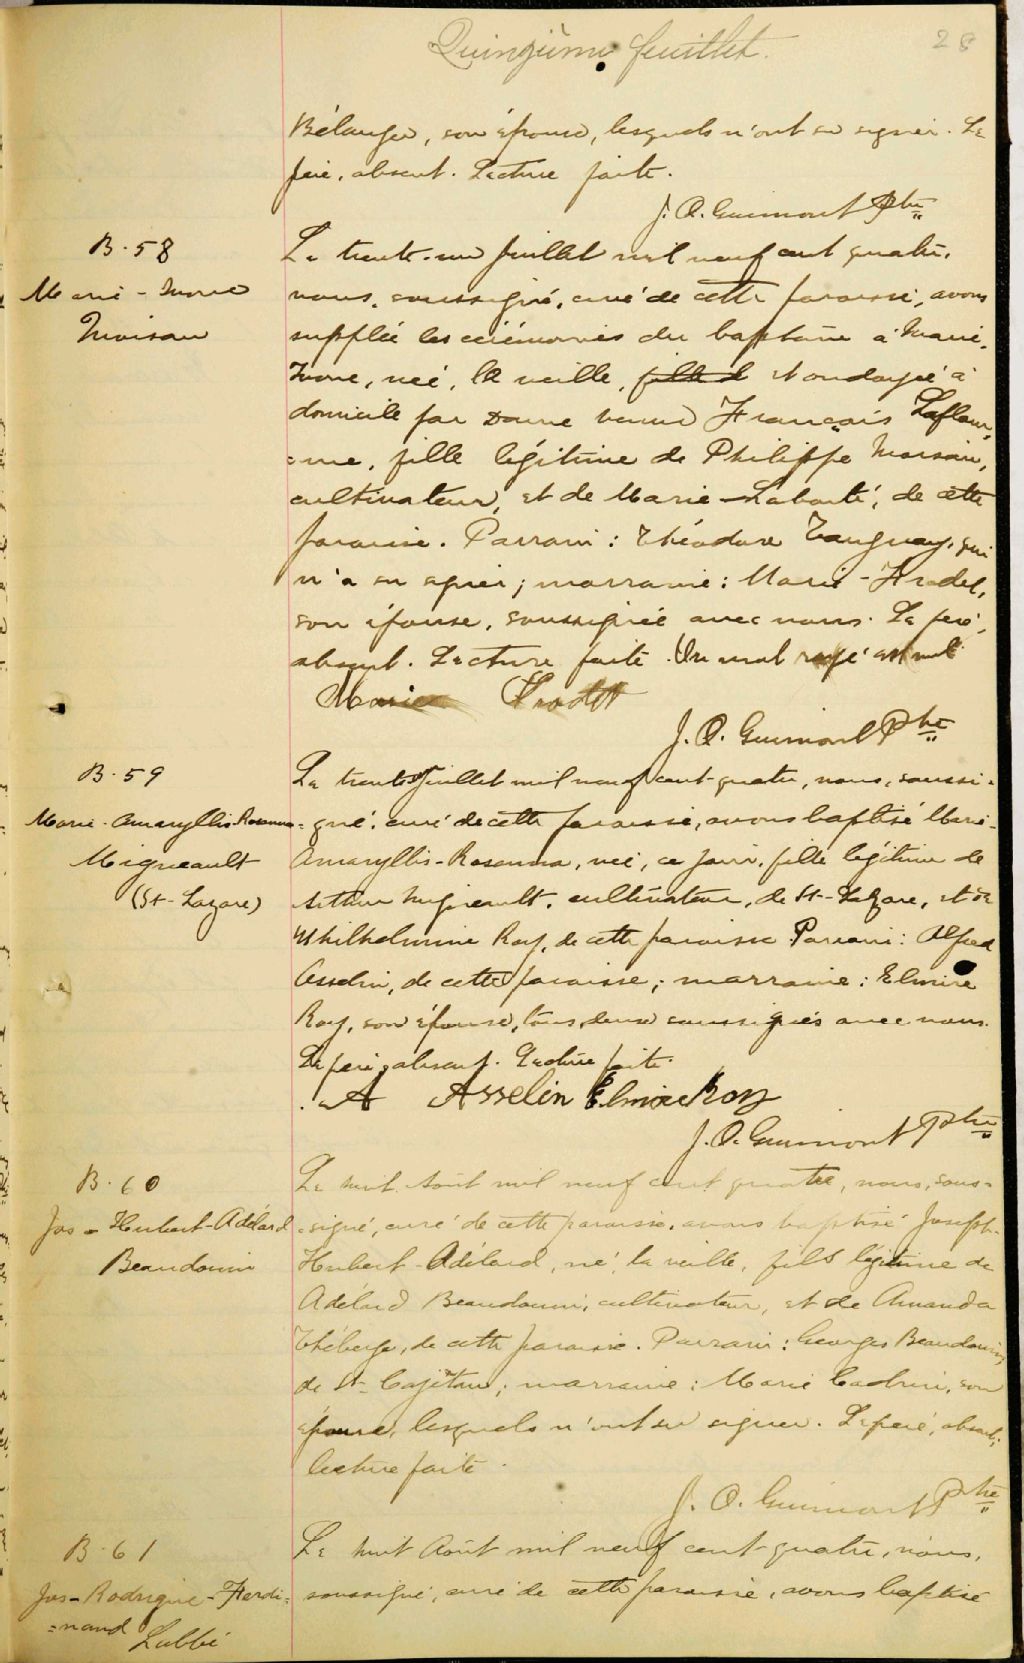 Quinzième feuillet.
28
Bélanger, son épouse, lesquels n'ont su signer. Le
père, absent. Lecture faite.
J. O. Guimont Ptre
B. 58
Marie-Ivone
Moisan
Le trente-un Juillet mil neuf cent quatre,
nous, soussigné, curé de cette paroisse, avons
supplée les cérémonies du baptême à Marie-
Ivone, née, la veille, et ondoyée à
domicile par Dame veuve François Laflam-
=me, fille légitime de Philippe Moisan,
cultivateur, et de Marie Labonté, de cette
paroisse. Parrain: Théodore Tanguay, qui
n'a su signer; marraine: Marie-Fradet,
son épouse, soussignée avec nous. Le père,
absent. Lecture faite. Un mot rayé est nul
Marie Fradet
J. O. Guimont Ptre
B. 59
Marie-Amaryllis-Rosanna
Migneault
(St-Lazare)
Le Juillet mil neuf cent-quatre, nous, soussi=
=gné, curé de cette paroisse, avons baptisé Marie-
Amaryllis-Rosanna, née, ce jour, fille légitime de
Arthur Migneault, cultivateur, de St-Lazare, et de
Whilhelmine Roy, de cette paroisse. Parrain: Alfred
Asselin, de cette paroisse; marraine: Elmire
Roy, son épouse, tous deux soussignés avec nous.
Le père, absent. Lecture faite.
A Asselin Elmire Roy
J. O. Guimont Ptre
B. 60
Jos-Hubert-Adélard
Beaudouin
Le huit Août mil neuf cent quatre, nous, sous=
=signé, curé de cette paroisse, avons baptisé Joseph-
Hubert-Adélard, né, la veille, fils légitime de
Adélard Beaudouin, cultivateur, et de Amanda
Théberge, de cette paroisse. Parrain: Georges Beaudouin
de St-Cajétan; marraine: Marie Cadrin, son
épouse, lesquels n'ont su signer. Le père, absent;
lecture faite.
J. O. Guimont Ptre
B. 61
Jos-Rodrigue-Ferdi=
=nand Labbé
Le huit Août mil neuf cent-quatre, nous,
soussigné, curé de cette paroisse, avons baptisé